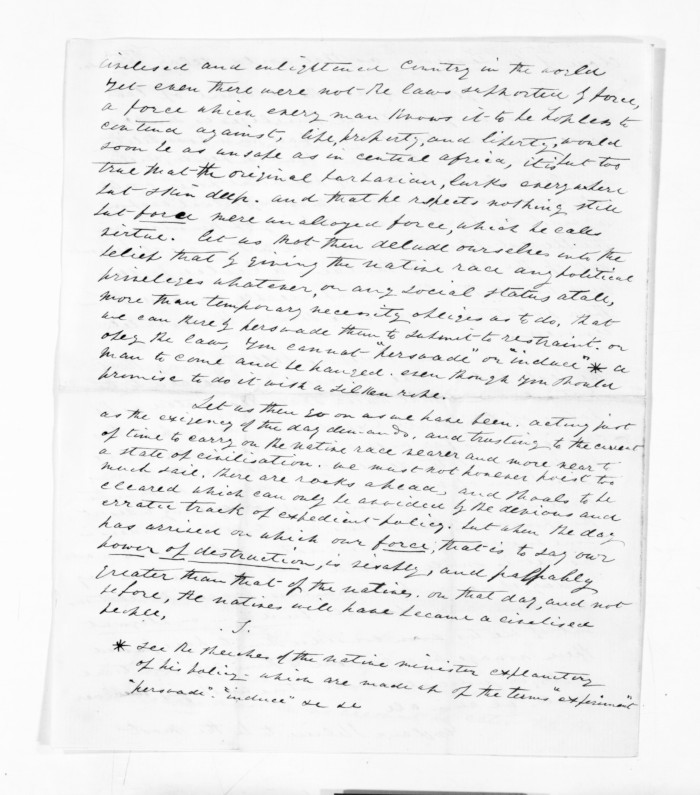 civilised and enlightened Country in the world
yet even there were not the laws supported by force,
a force which every man knows it to be hopless to
contend against, life, property, and liberty, would
soon be as unsafe as in central africa, it is but too
true that the original barbarian, lurks everywhere
but skin deep. and that he respects nothing still
but force mere unaloyed force, which he calls
virtue. let us not then delude ourselves into the
belief that by giving the native race any political
priveleges whatever, or any social status at all,
more than temporary necessity obliges us to do, that
we can thereby perswade them to submit to restraint. or
obey the laws, you cannot "perswade" or "induce" * a
man to come and be hanged. even though you should
promise to do it with a silken rope.
Let us then go on as we have been. acting just
as the exigency of the day demands, and trusting to the current
of time to carry on the native race nearer and more near to
a state of civilisation. we must not however hoist too
much sail. there are rocks ahead, and shoals to be
cleared which can only be avoided by the devious and
erratic track of expedient policy. but when the day
has arrised on which our force, that is to say our
power of destruction, is visably, and palpably
greater than that of the natives. on that day, and not
before, the natives will have became a civilised
people,
* see the speeches of the native minister explanetory
of his policy - which are made up of the terms "experiment"
"perswade". "induce" &c &c